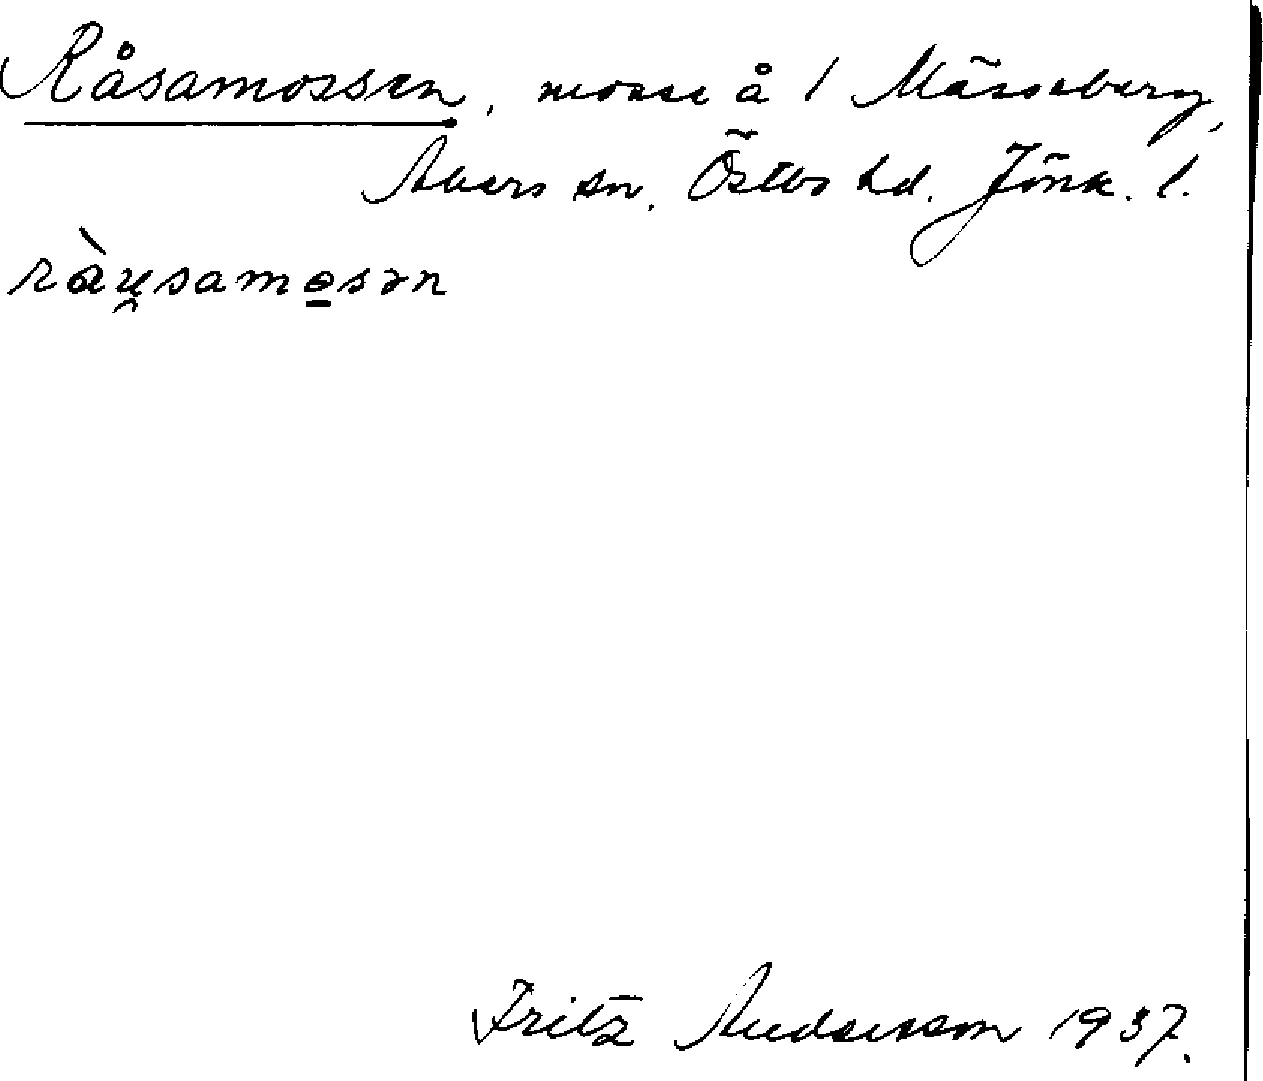 Råsamossen, mosse å 1 Mässeberg,
Akers sn. Östbo hd. Jönk. l.
ràu̯samo̱sən
Fritz Andersson 1937.